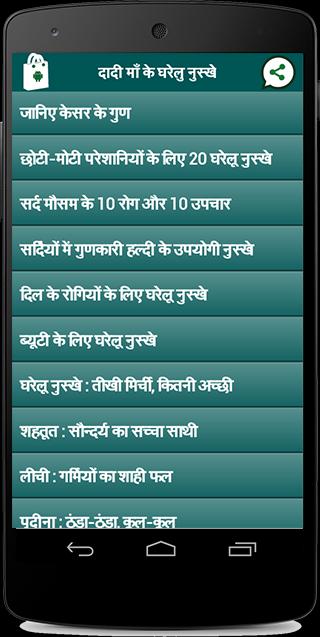 दादी माँ के घरेलु नुस्खे
जानिए केसर के गुण
छोटी-मोटी परेशानियों के लिए 20 घरेलू नुस्खे
सर्द मौसम के 10 रोग और 10 उपचार
सर्दियों में गुणकारी हल्दी के उपयोगी नुस्खे
दिल के रोगियों के लिए घरेलू नुस्खे
ब्यूटी के लिए घरेलू नुस्खे
घरेलू नुस्खे : तीखी मिर्ची, कितनी अच्छी
शहतूत : सौन्दर्य का सच्चा साथी
लीची : गर्मियों का शाही फल
पुदीना : ठंडा-ठंडा, कूल-कूल